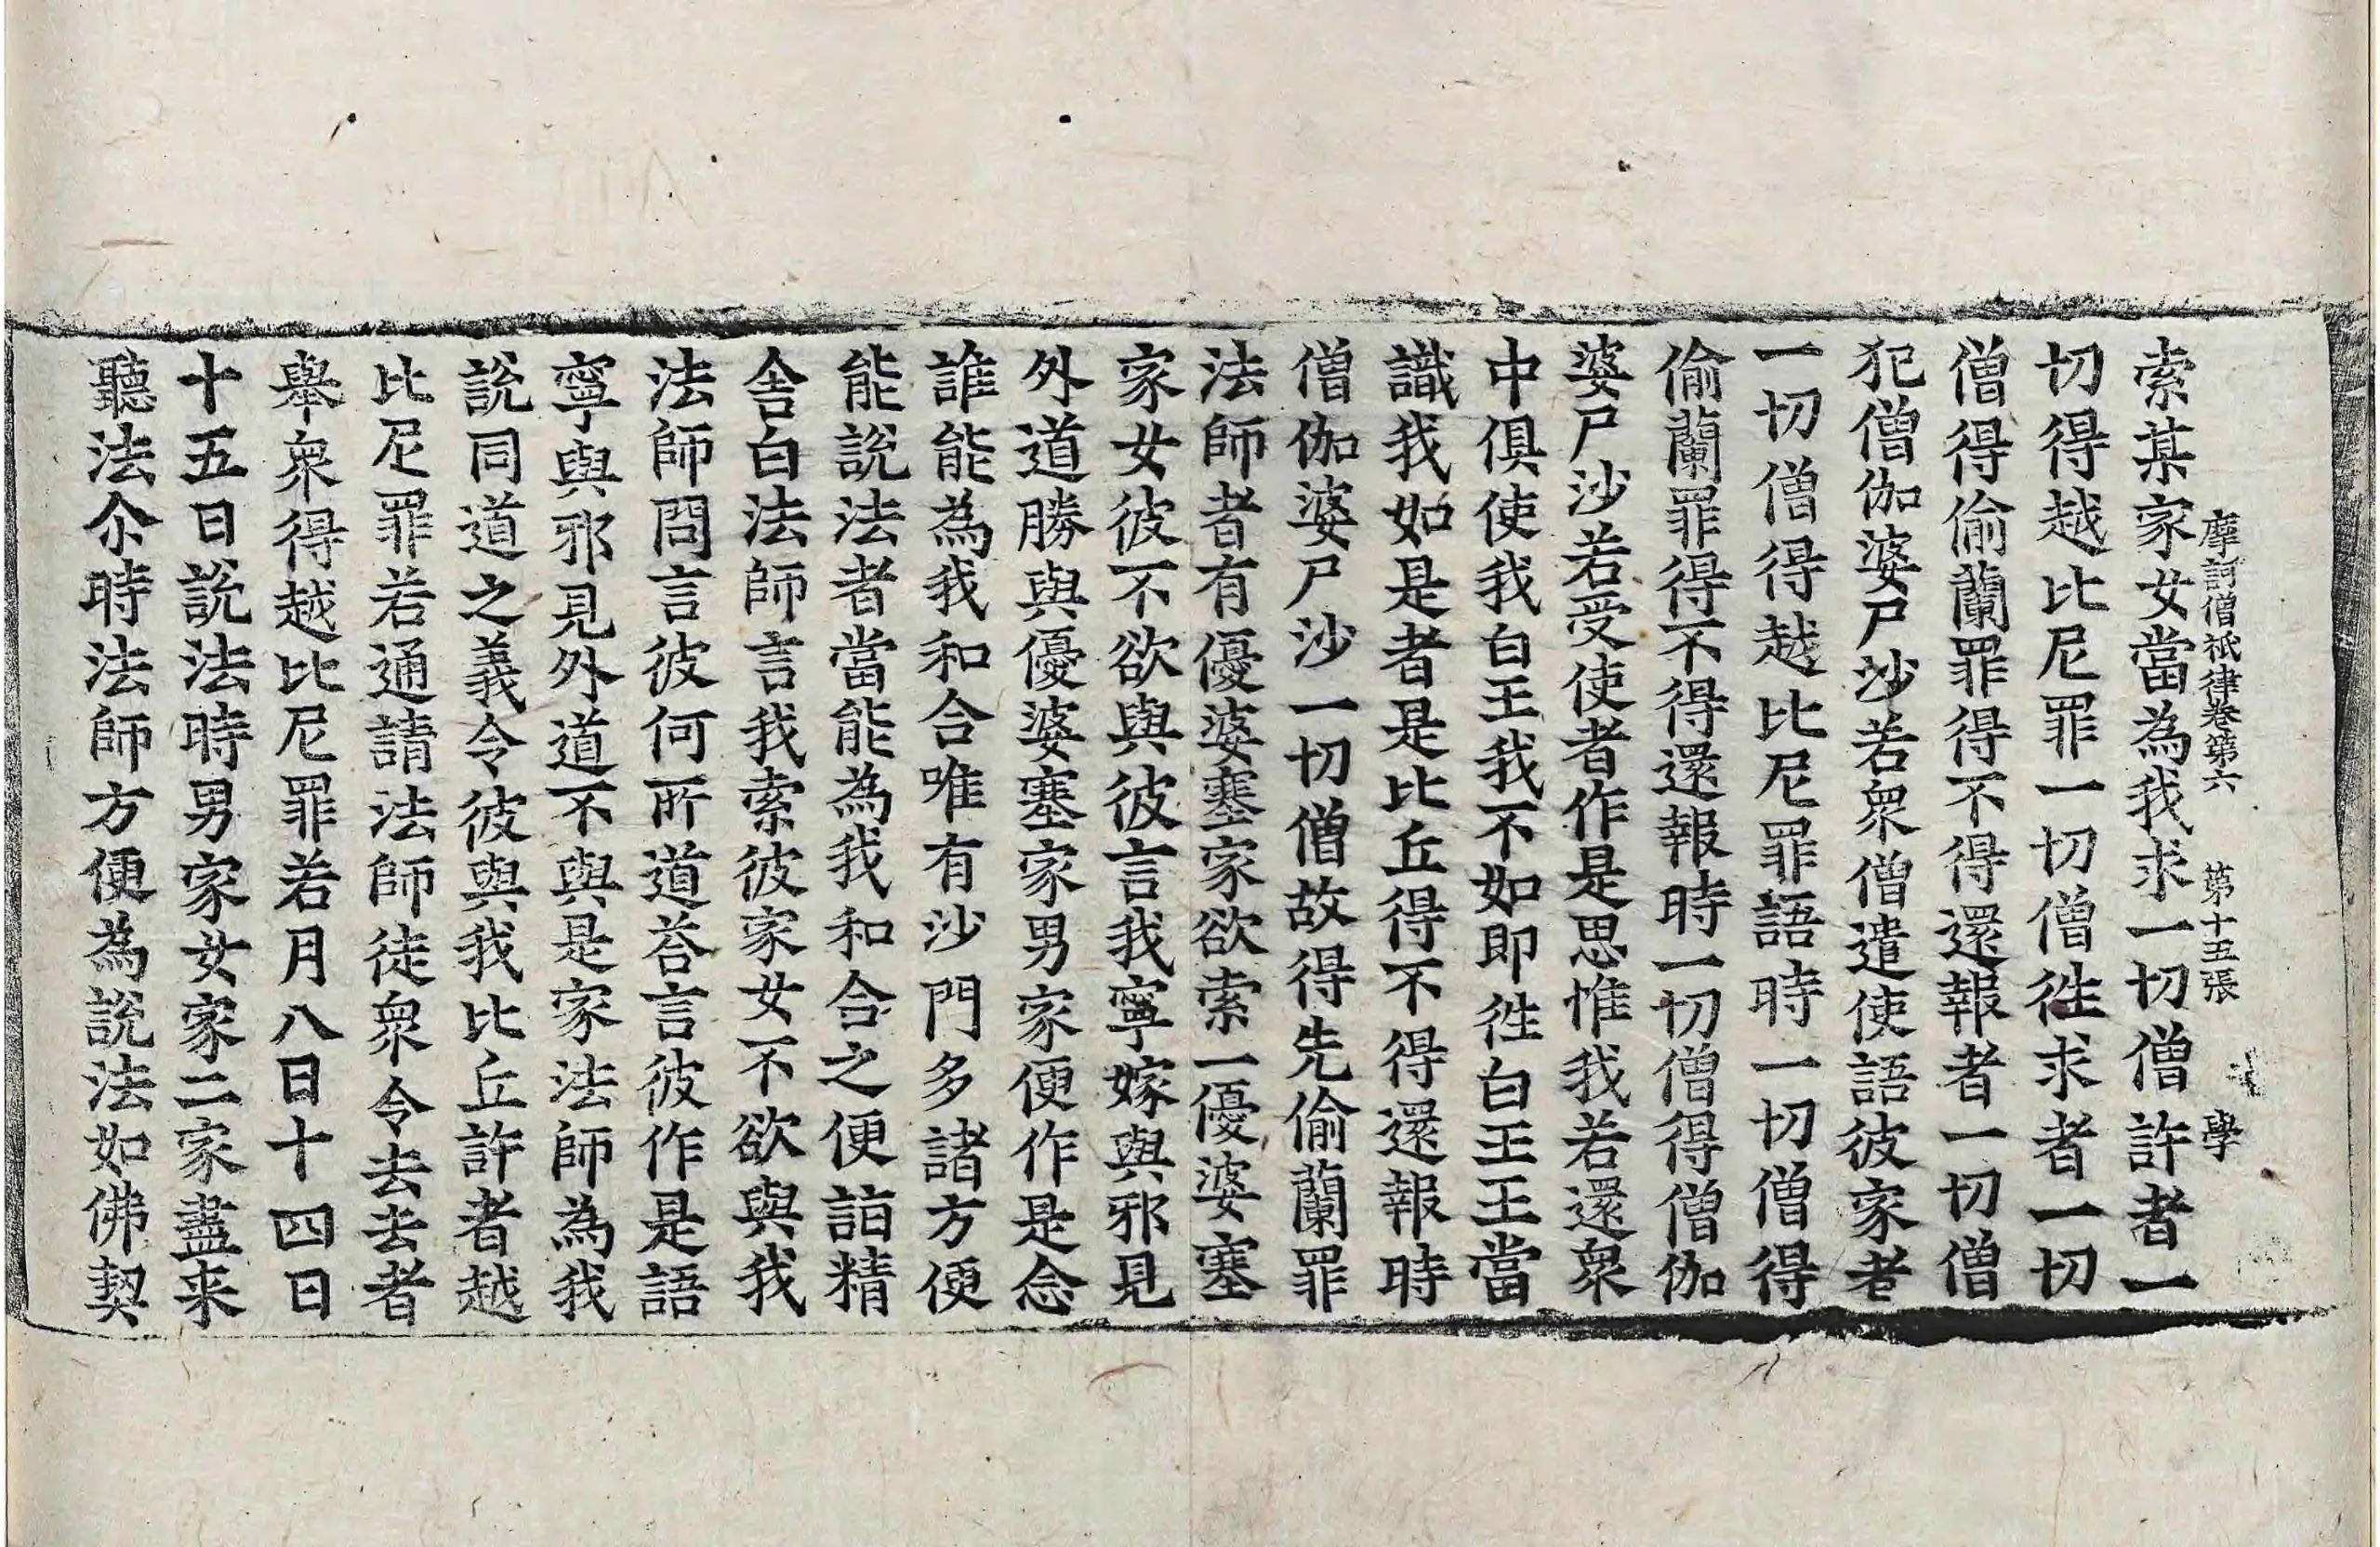 摩訶僧祇律卷第六 第十五張 學
索某家女當為我求一切僧許者一
切得越比尼罪一切僧徃求者一切
僧得偷蘭罪得不得還報者一切僧
犯僧伽婆尸沙若衆僧遣使語彼家者
一切僧得越比尼罪語時一切僧得
偷蘭罪得不得還報時一切僧得僧伽
婆尸沙若受使者作是思惟我若還衆
中俱使我白王我不如即徃白王王當
識我如是者是比丘得不得還報時
僧伽婆尸沙一切僧故得先偷蘭罪
法師者有優婆塞家欲索一優婆塞
家女彼不欲與彼言我寧嫁與邪見
外道勝與優婆塞家男家便作是念
誰能為我和合唯有沙門多諸方便
能說法者當能為我和合之便詣精
舍白法師言我索彼家女不欲與我
法師問言彼何所道荅言彼作是語
寧與邪見外道不與是家法師為我
說同道之義令彼與我比丘許者越
比尼罪若通請法師徒衆令去去者
舉衆得越比尼罪若月八日十四日
十五日說法時男家女家二家盡来
聽法尒時法師方便為說法如佛契